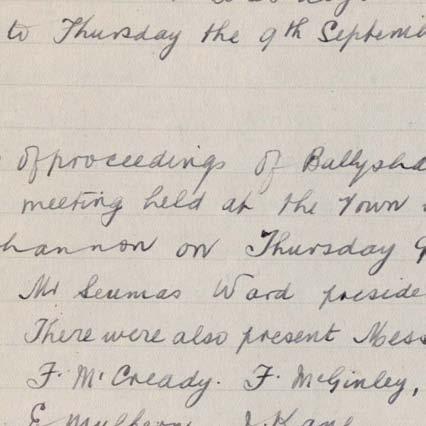 to Thursday the 9th Septem
of proceedings of Ballysha
meeting held at the Town
hannon on Thursday 9
Mr Seumas Ward preside
There were also present Mess
F. McCready. F. McGinley,
E. Mulhern J. Kane